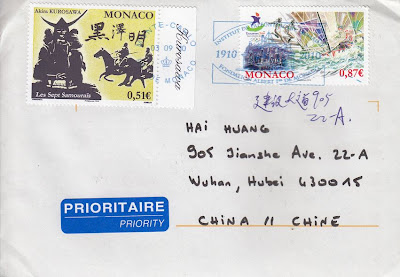 Akira KUROSAWA
MONACO
黒澤明
Kurosawa
Les Sept Samouraïs
0,51€
09
INSTITUT
1910
2010
MONACO
0,87€
建设大道905
22-A.
HAI HUANG
905 Jianshe Ave. 22-A
Wuhan, Hubei 430015
CHINA // CHINE
PRIORITAIRE
PRIORITY